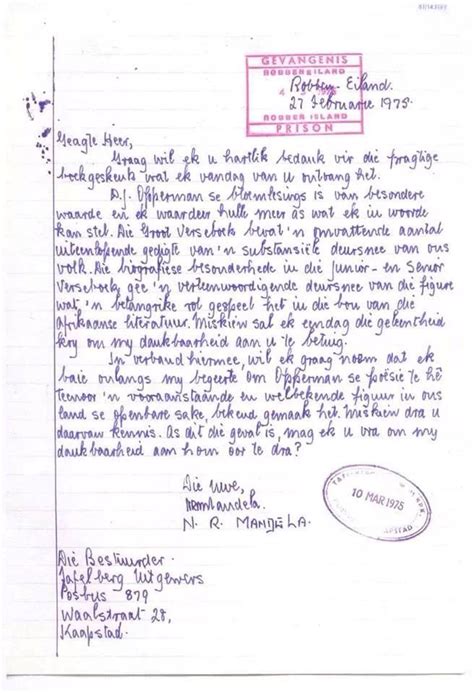 GEVANGENIS
ROBBENEILAND
ROBBEN ISLAND
PRISON
Robben-Eiland.
27 Februarie 1975.
Geagte Heer,
Graag wil ek u hartlik bedank vir die pragtige
boekgeskenk wat ek vandag van u ontvang het.
D.J. Opperman se bloemlesings is van besondere
waarde en ek waardeer hulle meer as wat ek in woorde
kan stel. Die Groot Verseboek bevat 'n omvattende aantal
uiteenlopende gedigte van 'n substansiële deursnee van ons
volk. Die biografiese besonderhede in die Junior- en Senior
Verseboek gee 'n verteenwoordigende deursnee van die figure
wat 'n belangrike rol gespeel het in die bou van die
Afrikaanse literatuur. Miskien sal ek eendag die geleentheid
kry om my dankbaarheid aan u te betuig.
In verband hiermee, wil ek graag noem dat ek
baie onlangs my begeerte om Opperman se poësie te hê
teenoor 'n vooraanstaande en welbekende figuur in ons
land se openbare sake, bekend gemaak het. Miskien dra u
daarvan kennis. As dit die geval is, mag ek u vra om my
dankbaarheid aan hom oor te dra?
Die Uwe,
NRMandela.
N. R. MANDELA.
10 MAR 1975
Die Bestuurder.
Tafelberg Uitgewers
Posbus 879
Waalstraat 28,
Kaapstad.